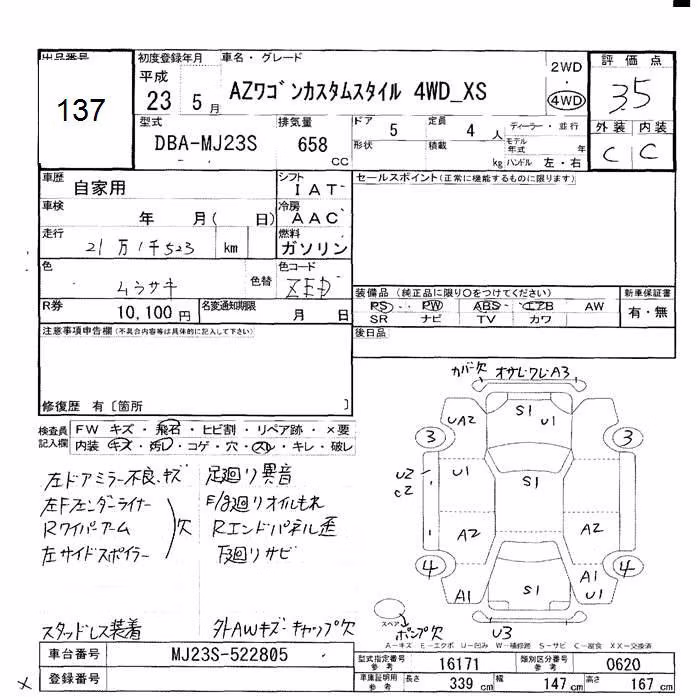 出品番号 初度登録年月 車名・グレード 評価点
137 平成 23 5月 AZワゴンカスタムスタイル 4WD_XS 2WD 4WD 35
型式 排気量 ドア 5 定員 4人 ディーラー・並行 外装 内装
DBA-MJ23S 658 CC 形状 積載 kg モデル年式 年 ハンドル 左・右 C C
車歴 自家用 シフト IAT セールスポイント(正常に機能するものに限ります)
車検 年 月( 日) 冷房 AAC
走行 21万1千523 km 燃料 ガソリン
色 ムラサキ 色替 色コード 装備品(純正品に限り○をつけてください) 新車保証書
PS PW ABS エアB AW 有・無
R券 10,100円 名変通知期限 月 日 SR ナビ TV カワ
注意事項申告欄(不具合内容等は具体的に記入して下さい) 後日品
カバー欠 オサレ・ワレ・A3
修復歴 有〔箇所 〕
検査員記入欄 FW キズ・飛石・ヒビ割・リペア跡・×要
内装 キズ・汚れ・コゲ・穴・スレ・キレ・破レ
左ドアミラー不良、キズ 足廻り異音
左Fフェンダーライナー F/g廻りオイルもれ
Rワイパーアーム 欠 Rエンドパネル歪
左サイドスポイラー 下廻りサビ
スタッドレス装着 外AWキズ・キャップ欠
S1 U1
UA2
3 3
U2 U1 S1
C2
A2 A2
4 4
A1 S1 A1
U1
スペア ポンプ欠 U3
A-キズ E-エクボ U-凹み W-補修跡 S-サビ C-腐食 XX-交換済
車台番号 MJ23S-522805 型式指定番号 参考 16171 類別区分番号 参考 0620
登録番号 車庫証明用 参考 長さ 339 cm 幅 147 cm 高さ 167 cm